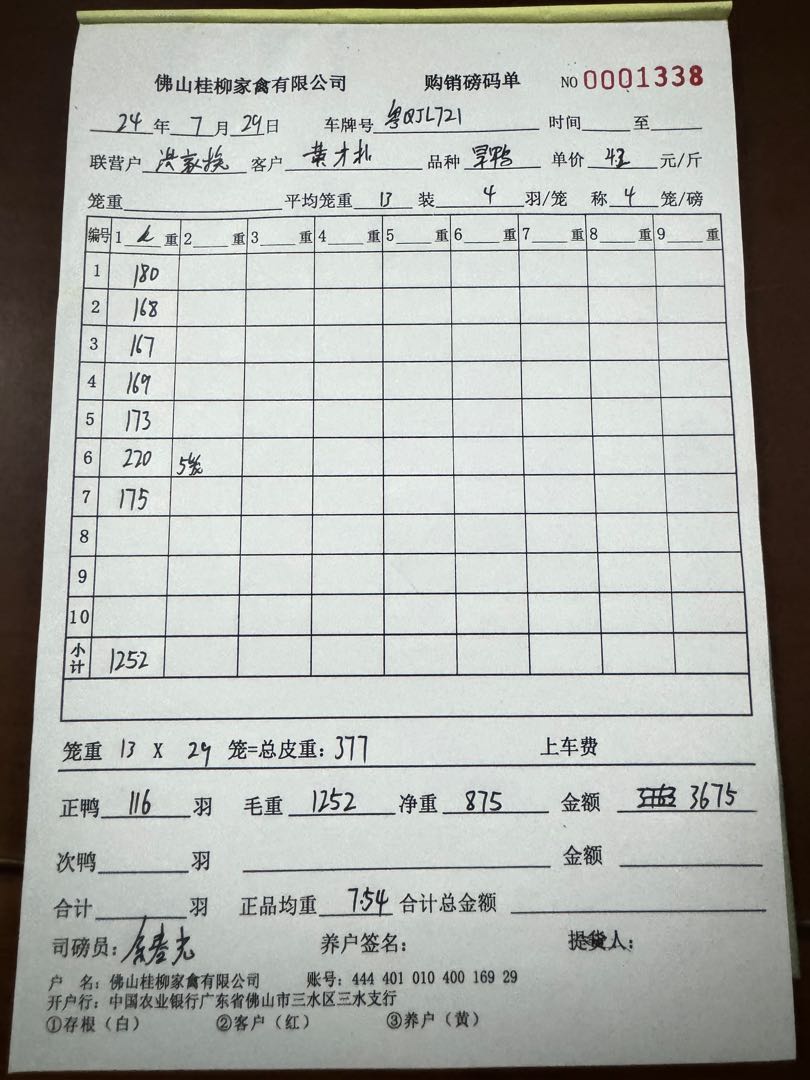 佛山桂柳家禽有限公司 购销磅码单 NO 0001338
24 年 7 月 29 日 车牌号 粤QJL721 时间 至
联营户 洪家 客户 黄才 品种 旱鸭 单价 元/斤
笼重 平均笼重 13 装 4 羽/笼 称 4 笼/磅
编号 1 重 2 重 3 重 4 重 5 重 6 重 7 重 8 重 9 重
1 180
2 168
3 167
4 169
5 173
6 220 5笼
7 175
8
9
10
小计 1252
笼重 13 X 29 笼=总皮重: 377 上车费
正鸭 116 羽 毛重 1252 净重 875 金额 3675
次鸭 羽 金额
合计 羽 正品均重 7.54 合计总金额
司磅员: 养户签名: 提货人:
户 名: 佛山桂柳家禽有限公司 账号: 444 401 010 400 169 29
开户行: 中国农业银行广东省佛山市三水区三水支行
①存根(白) ②客户(红) ③养户(黄)